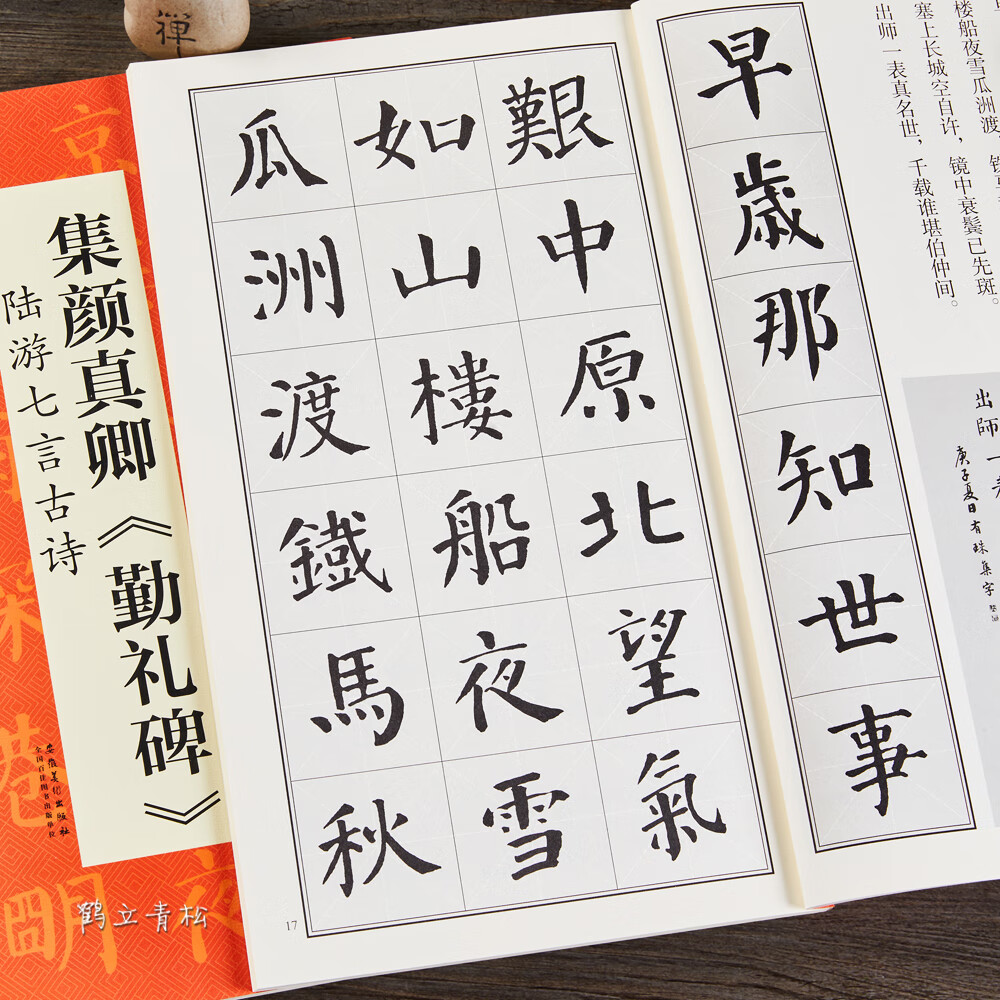 禪
集颜真卿《勤礼碑》
陆游七言古诗
安徽美术出版社
全国百佳图书出版单位
京
夜
明
鹤立青松
楼船夜雪瓜洲渡，
塞上长城空自许，镜中衰鬓已先斑。
出师一表真名世，千载谁堪伯仲间。
早歲那知世事
艱中原北望氣
如山樓船夜雪
瓜洲渡鐵馬秋
17
出師一表
庚子夏日有珠集字